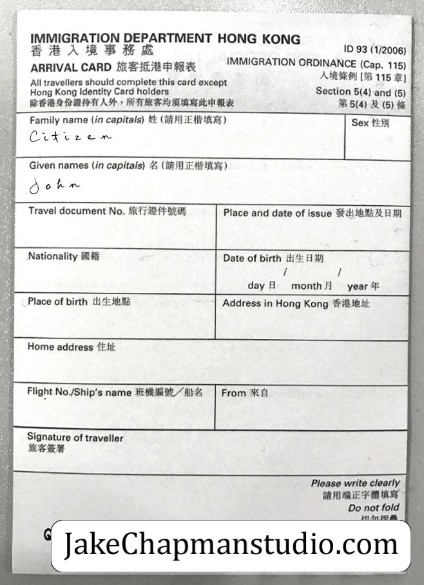 IMMIGRATION DEPARTMENT HONG KONG
香港入境事務處
ID 93 (1/2006)
ARRIVAL CARD 旅客抵港申報表
IMMIGRATION ORDINANCE (Cap. 115)
入境條例 [第 115 章]
All travellers should complete this card except
Hong Kong Identity Card holders
Section 5(4) and (5)
除香港身份證持有人外，所有旅客均須填寫此申報表
第 5(4) 及 (5) 條
Family name (in capitals) 姓 (請用正楷填寫)
Sex 性別
Citizen
Given names (in capitals) 名 (請用正楷填寫)
John
Travel document No. 旅行證件號碼
Place and date of issue 發出地點及日期
Nationality 國籍
Date of birth 出生日期
/ /
day 日 month 月 year 年
Place of birth 出生地點
Address in Hong Kong 香港地址
Home address 住址
Flight No./Ship's name 班機編號／船名
From 來自
Signature of traveller
旅客簽署
Please write clearly
請用端正字體填寫
Do not fold
JakeChapmanstudio.com